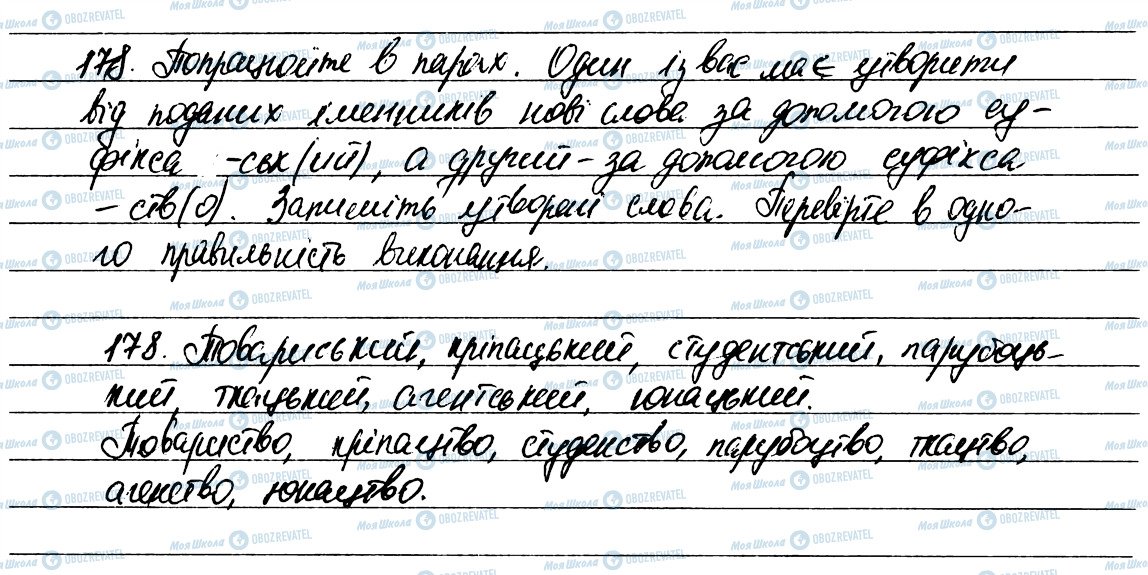 178. Попрацюйте в парах. Один із вас має утворити
від поданих іменників нові слова за допомогою су-
фікса -ськ(ий), а другий - за допомогою суфікса
- ств(о). Запишіть утворені слова. Перевірте в одно-
го правильність виконання.
178. Товариський, кріпацький, студентський, парубоць-
кий, ткацький, агентський, юнацький.
Товариство, кріпацтво, студенство, парубоцтво, ткацтво,
агенство, юнацтво.